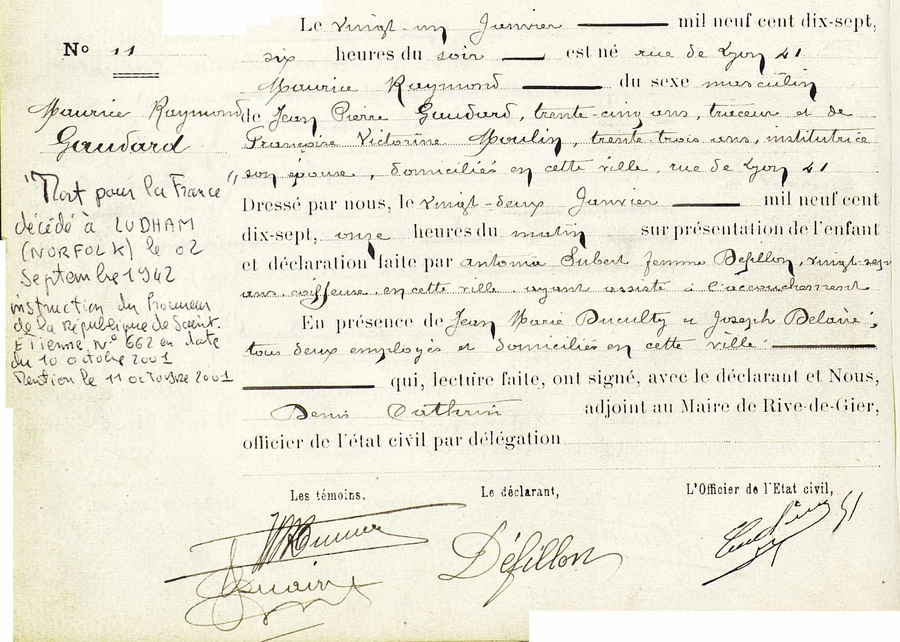 Le vingt-un Janvier mil neuf cent dix-sept,
N° 11
six heures du soir est né rue de Lyon 41
Maurice Raymond du sexe masculin
Maurice Raymond
Gaudard
de Jean Pierre Gaudard, trente-cinq ans, traceur et de
Françoise Victorine Moulin, trente-trois ans, institutrice
son épouse, domiciliés en cette ville, rue de Lyon 41
"Mort pour la France"
décédé à LUDHAM
(NORFOLK) le 02
Septembre 1942
instruction du Procureur
de la République de Saint.
Etienne N° 662 en date
du 10 octobre 2001
Mention le 11 octobre 2001
Dressé par nous, le vingt-deux Janvier mil neuf cent
dix-sept, onze heures du matin sur présentation de l'enfant
et déclaration faite par Antonia femme Défillon, vingt-sept
ans, coiffeuse en cette ville, ayant assisté à l'accouchement
En présence de Jean Marie et Joseph
tous deux employés et domiciliés en cette ville.
qui, lecture faite, ont signé, avec le déclarant et Nous,
Denis Cathrin adjoint au Maire de Rive-de-Gier,
officier de l'état civil par délégation
Les témoins, Le déclarant, L'Officier de l'Etat civil,
Défillon